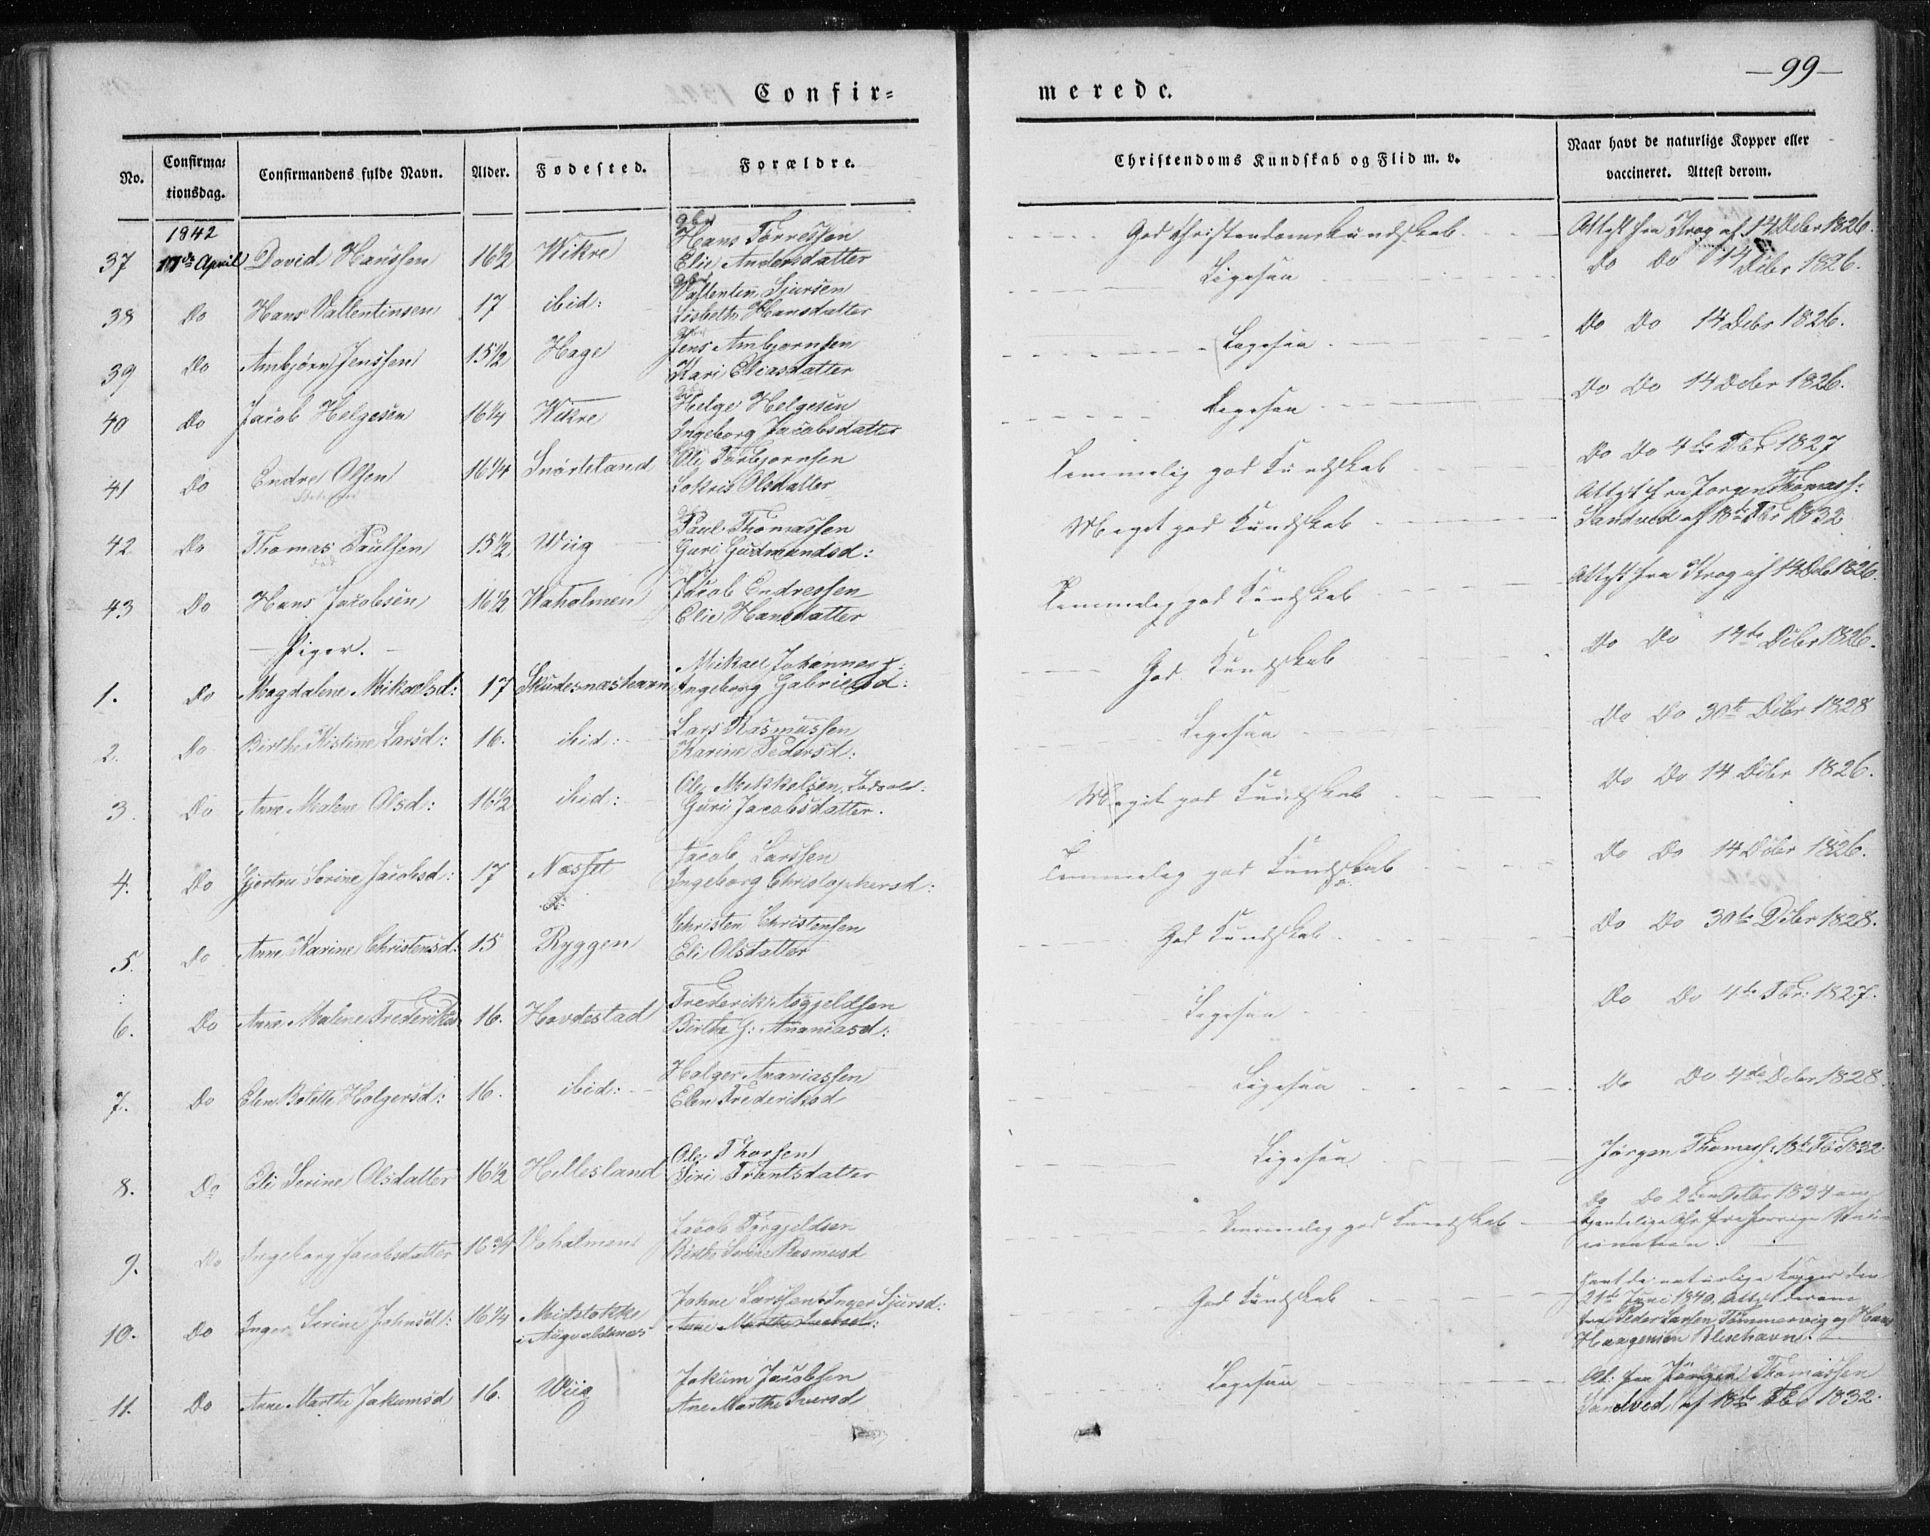 Confir= merede.
—99—
No. Confirmationsdag. Confirmandens fulde Navn. Alder. Fødested. Forældre. Christendoms Kundskab og Flid m. v. Naar havt de naturlige Kopper eller vaccineret. Attest derom.
1842
37 17de April David Hanssen 16½ Wikre Hans Torressen God Christendomskundskab Attest fra Krog af 14 Decbr 1826.
Elie Andersdatter
38 Do Hans Vallentinsen 17 ibid: Vallentin Sjursen Ligesaa Do Do 14 Decbr 1826.
Lisbeth Hansdatter
39 Do Ambjørn Jenssen 15½ Hage Jens Ambjornsen Ligesaa Do Do 14 Decbr 1826.
Kari Eliasdatter
40 Do Jacob Helgesen 16¼ Wikre Helge Helgesen Ligesaa Do Do 14 Decbr 1826.
Ingeborg Jacobsdatter
41 Do Endre Olsen 16¼ Snörteland Ole Torbjornsen Temmelig god Kundskab Do Do 4de Tbr 1827
Lokris Olsdatter
42 Do Thomas Poulsen 15½ Wiig Paul Thomassen Meget god Kundskab Attest fra Jorgen Thomass:
Guri Gudmundsd: Sandved af 18de Tbr 1832
43 Do Hans Jacobsen 16½ Waholmen Jacob Endressen Temmelig god Kundskab Attest fra Krog af 14 Decb 1826.
Elie Hansdatter
— Piger. —
1. Do Magdalene Mikaelsd: 17 Skudesnæshavn Mikael Johannes: God Kundskab Do Do 14de Decbr 1826.
Ingeborg Gabrielsd:
2. Do Birthe Kistine Larsd: 16. ibid: Lars Rasmussen Ligesaa Do Do 30te Decbr 1828
Karine Pedersd:
3. Do Anne Malene Olsd: 16½ ibid: Ole Mikkelsen Meget god Kundskab Do Do 14 Decbr 1826.
Guri Jacobsdatter.
4. Do Gjertru Serine Jacobsd: 17 Næsset Jacob Larssen Temmelig god Kundskab Do Do 14 Decbr 1826.
Ingeborg Christophersd:
5. Do Anne Karine Christensd: 15 Ryggen Christen Christensen God Kundskab Do Do 30te Decbr 1828.
Eli Olsdatter
6. Do Anne Malene Frederiksd 16. Hovdestad Frederik Asgjeldsen Ligesaa Do Do 4de Tbr: 1827.
Birthe G: Ananiasd:
7. Do Elen Bolette Holgersd: 16. ibid: Holger Ananiassen Ligesaa Do Do 4de Decbr 1828.
Elen Frederiksd
8. Do Eli Serine Olsdatter 16½ Hillesland Ole Thorsen Ligesaa Jørgen Thomass: 18de Tbr 1832
Siri Trontsdatter
9. Do Ingeborg Jacobsdatter 16¾ Vaholmen Jacob Torgjeldsen Temmelig god Kundskab Do Do 2den Octbr 1834
Birthe Serine Rasmusd
10. Do Inger Serine Johnsd: 16¼ Midstokke Johne Larssen Inger Sjursd: God Kundskab havt de naturlige Kopper den
i Augvaldsnæs Anne Marthe Jacobsd: 21de Juni 1840. Attest derom
fra Peder Larsen Tømmervig og Hans
Haagensen Vlesehavn.
11. Do Anne Marthe Jakumsd 16. Wiig Jakum Jacobsen Ligesaa At: fra Jörgen Thomassen
Ane Marthe Iversd Sandved af 18de Tbr 1832.